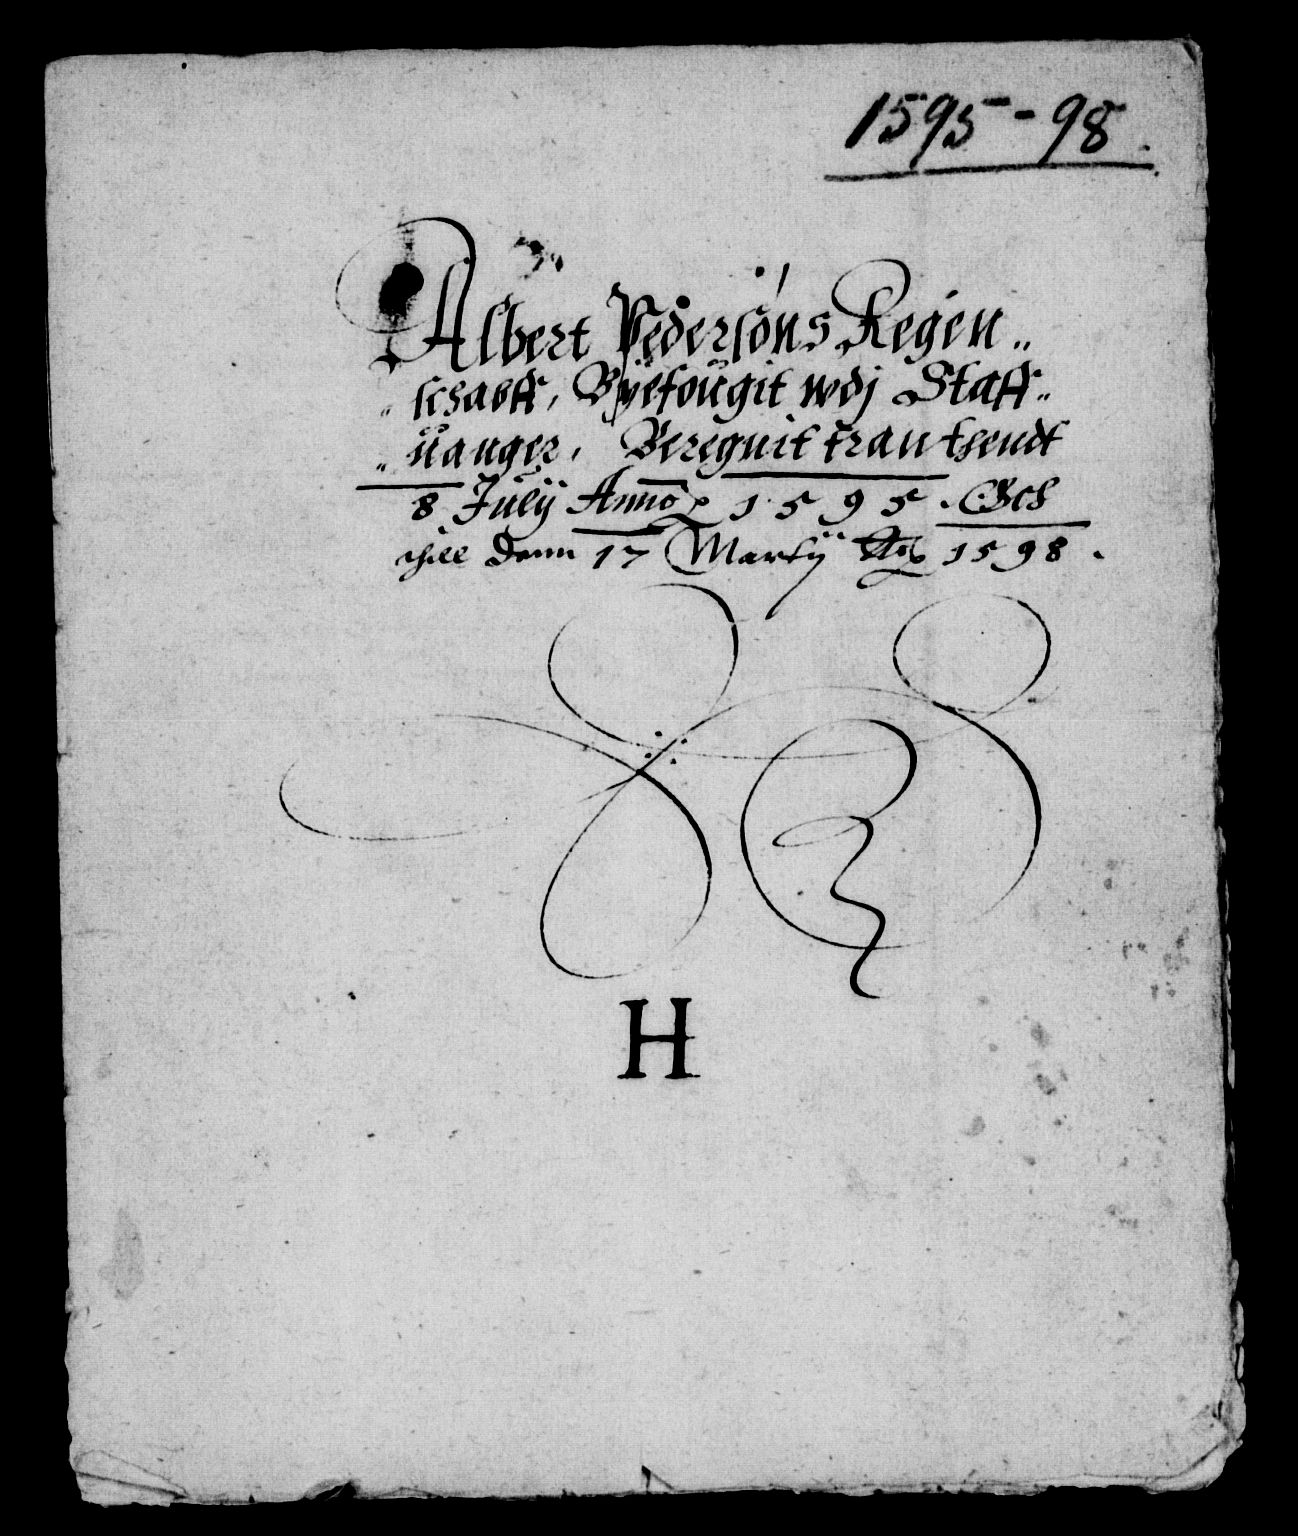 1595-98.
Albert Pedersøns Regen„
„schabff, Byefougit wdj Staff„
„uanger, Beregnit fran thendt
8 Julij Anno 1595. Och
thill denn 17 Martij Ao 1598.
H